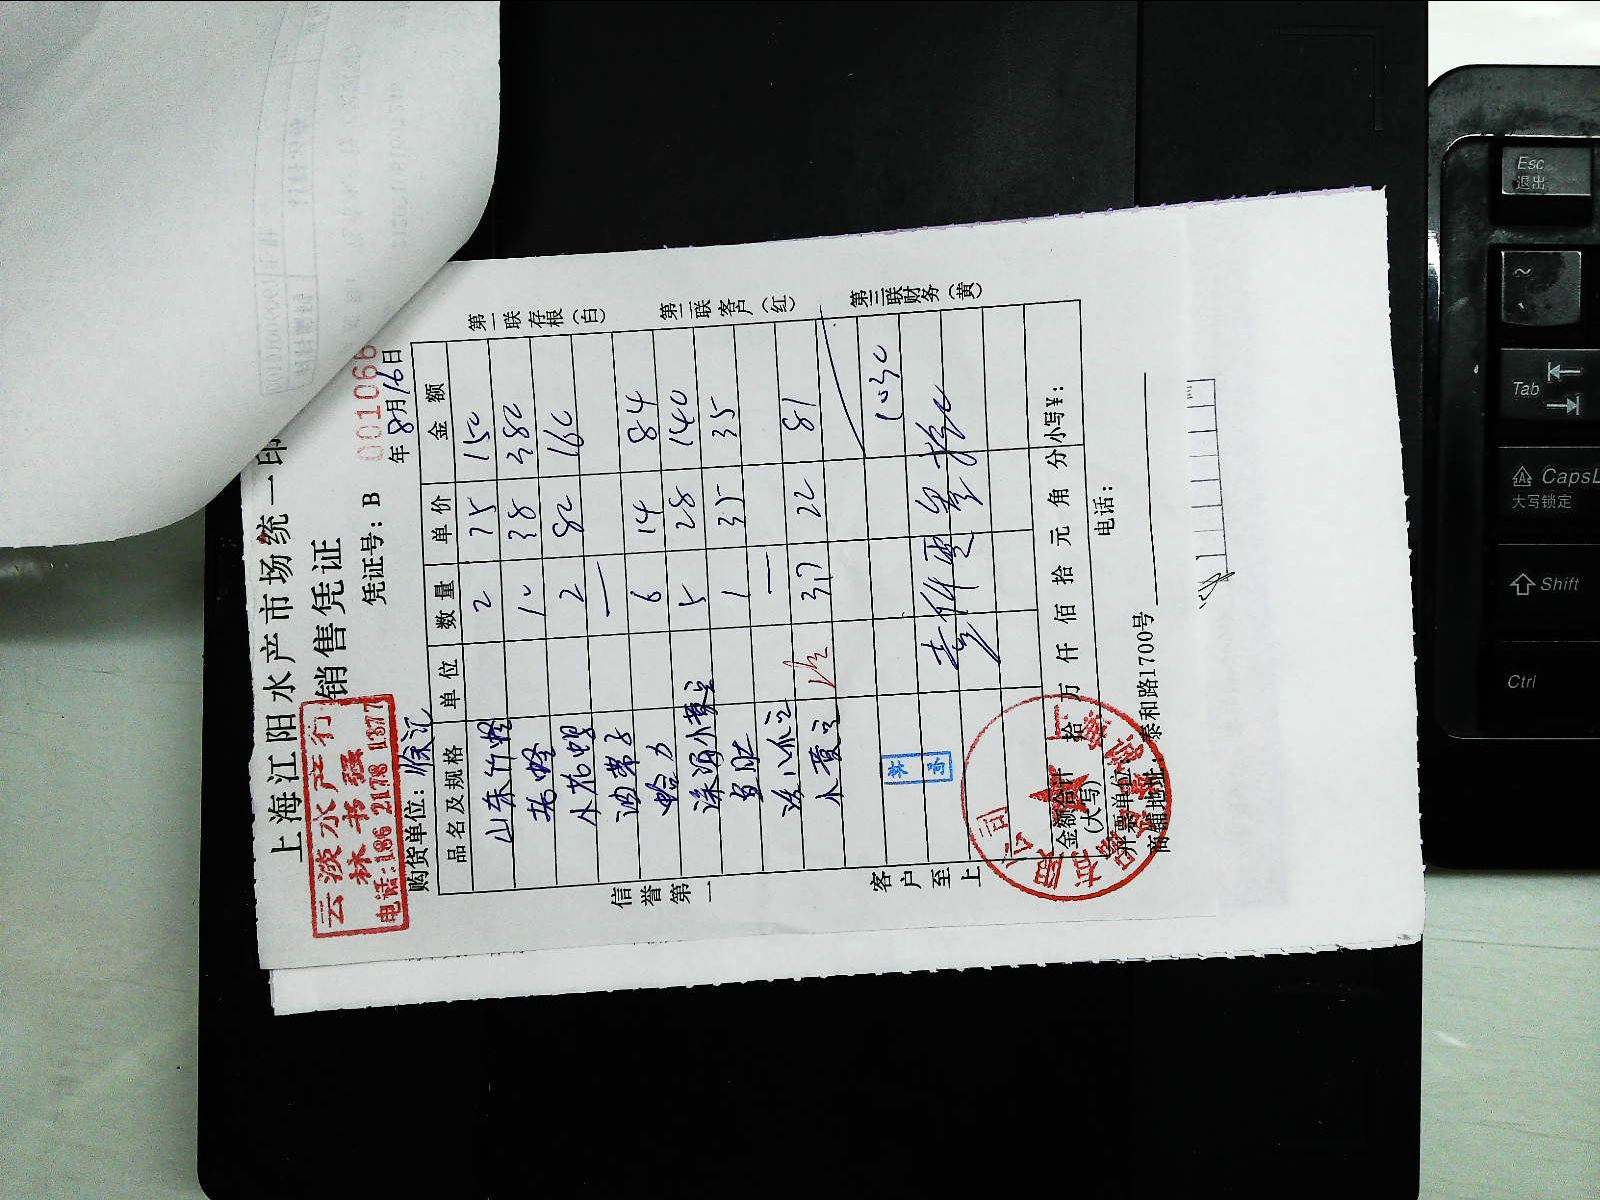 上海江阳水产市场统一印
销售凭证
云淡水产行
林书强
电话:186 2178 1377
凭证号:B 001066
购货单位:徐汇
年8月16日
品名及规格 单位 数量 单价 金额
山东竹蛏 2 75 150
10 38 380
小花螺 2 80 160
油带子 —
蛤 6 14 84
小黄 5 28 140
鱼肚 1 35 35
—
小黄 3.7 22 81
1030
壹仟零叁拾
金额合计(大写) 拾 万 仟 佰 拾 元 角 分 小写¥:
开票单位: 电话:
商铺地址: 泰和路1700号
信誉第一
客户至上
第一联存根(白)
第二联客户(红)
第三联财务(黄)
Esc
退出
~
Tab
CapsL
大写锁定
Shift
Ctrl